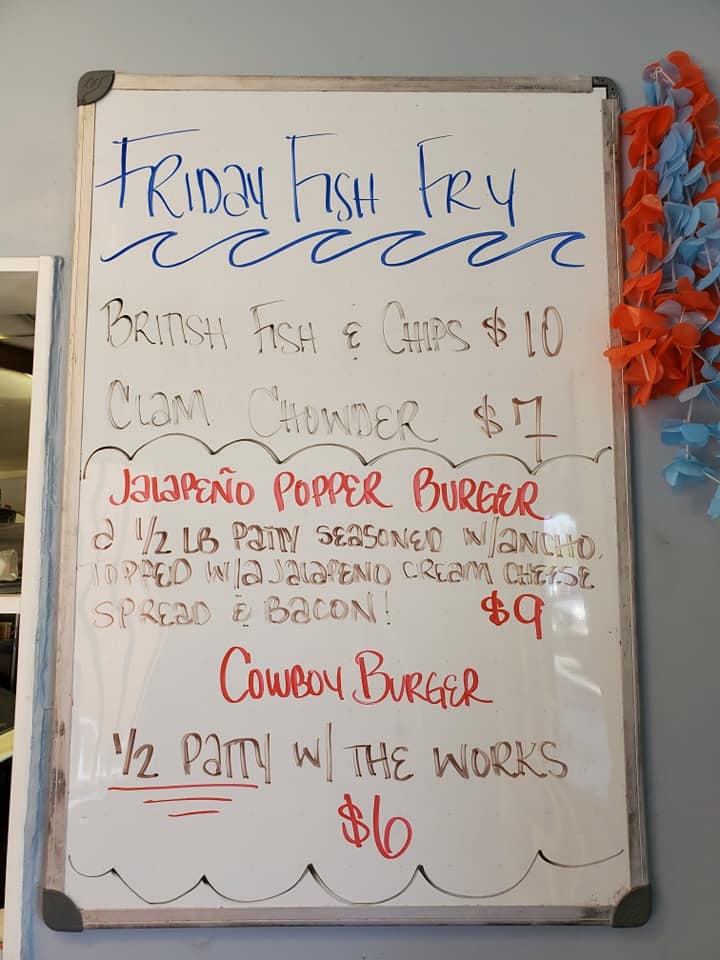 FRIDAY FISH FRY
BRITISH FISH & CHIPS $10
CLAM CHOWDER $7
JALAPEÑO POPPER BURGER
a 1/2 LB PATTY SEASONED W/ANCHO,
TOPPED W/a JALAPENO CREAM CHEESE
SPREAD & BACON! $9
COWBOY BURGER
1/2 PATTY W/ THE WORKS
$6